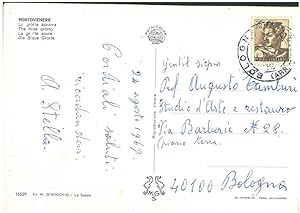 PORTOVENERE
La grotta azzurra
The blue grotto
La grotte azure
Die Blaue Grotte
24 agosto 1969.
Cordiali saluti.
ricordandovi.
A. Stella.
Gentil signor
Prof Augusto Tamburi
Studio d'Arte e restauro
Via Barberie N° 28.
piano terra.
40100 Bologna
BOLOGN
16529. Ed. M. GINOCCHIO - La Spezia